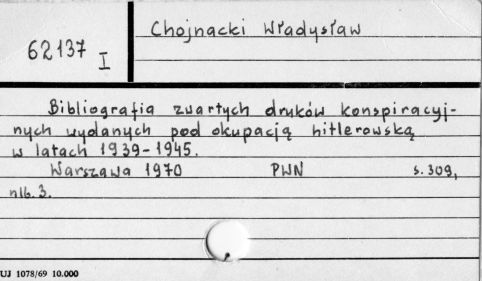 Chojnacki Władysław
62137 I
Bibliografia zwartych druków konspiracyj-
nych wydanych pod okupacją hitlerowską
w latach 1939-1945.
Warszawa 1970 PWN s. 309,
nlb. 3.
UJ 1078/69 10.000